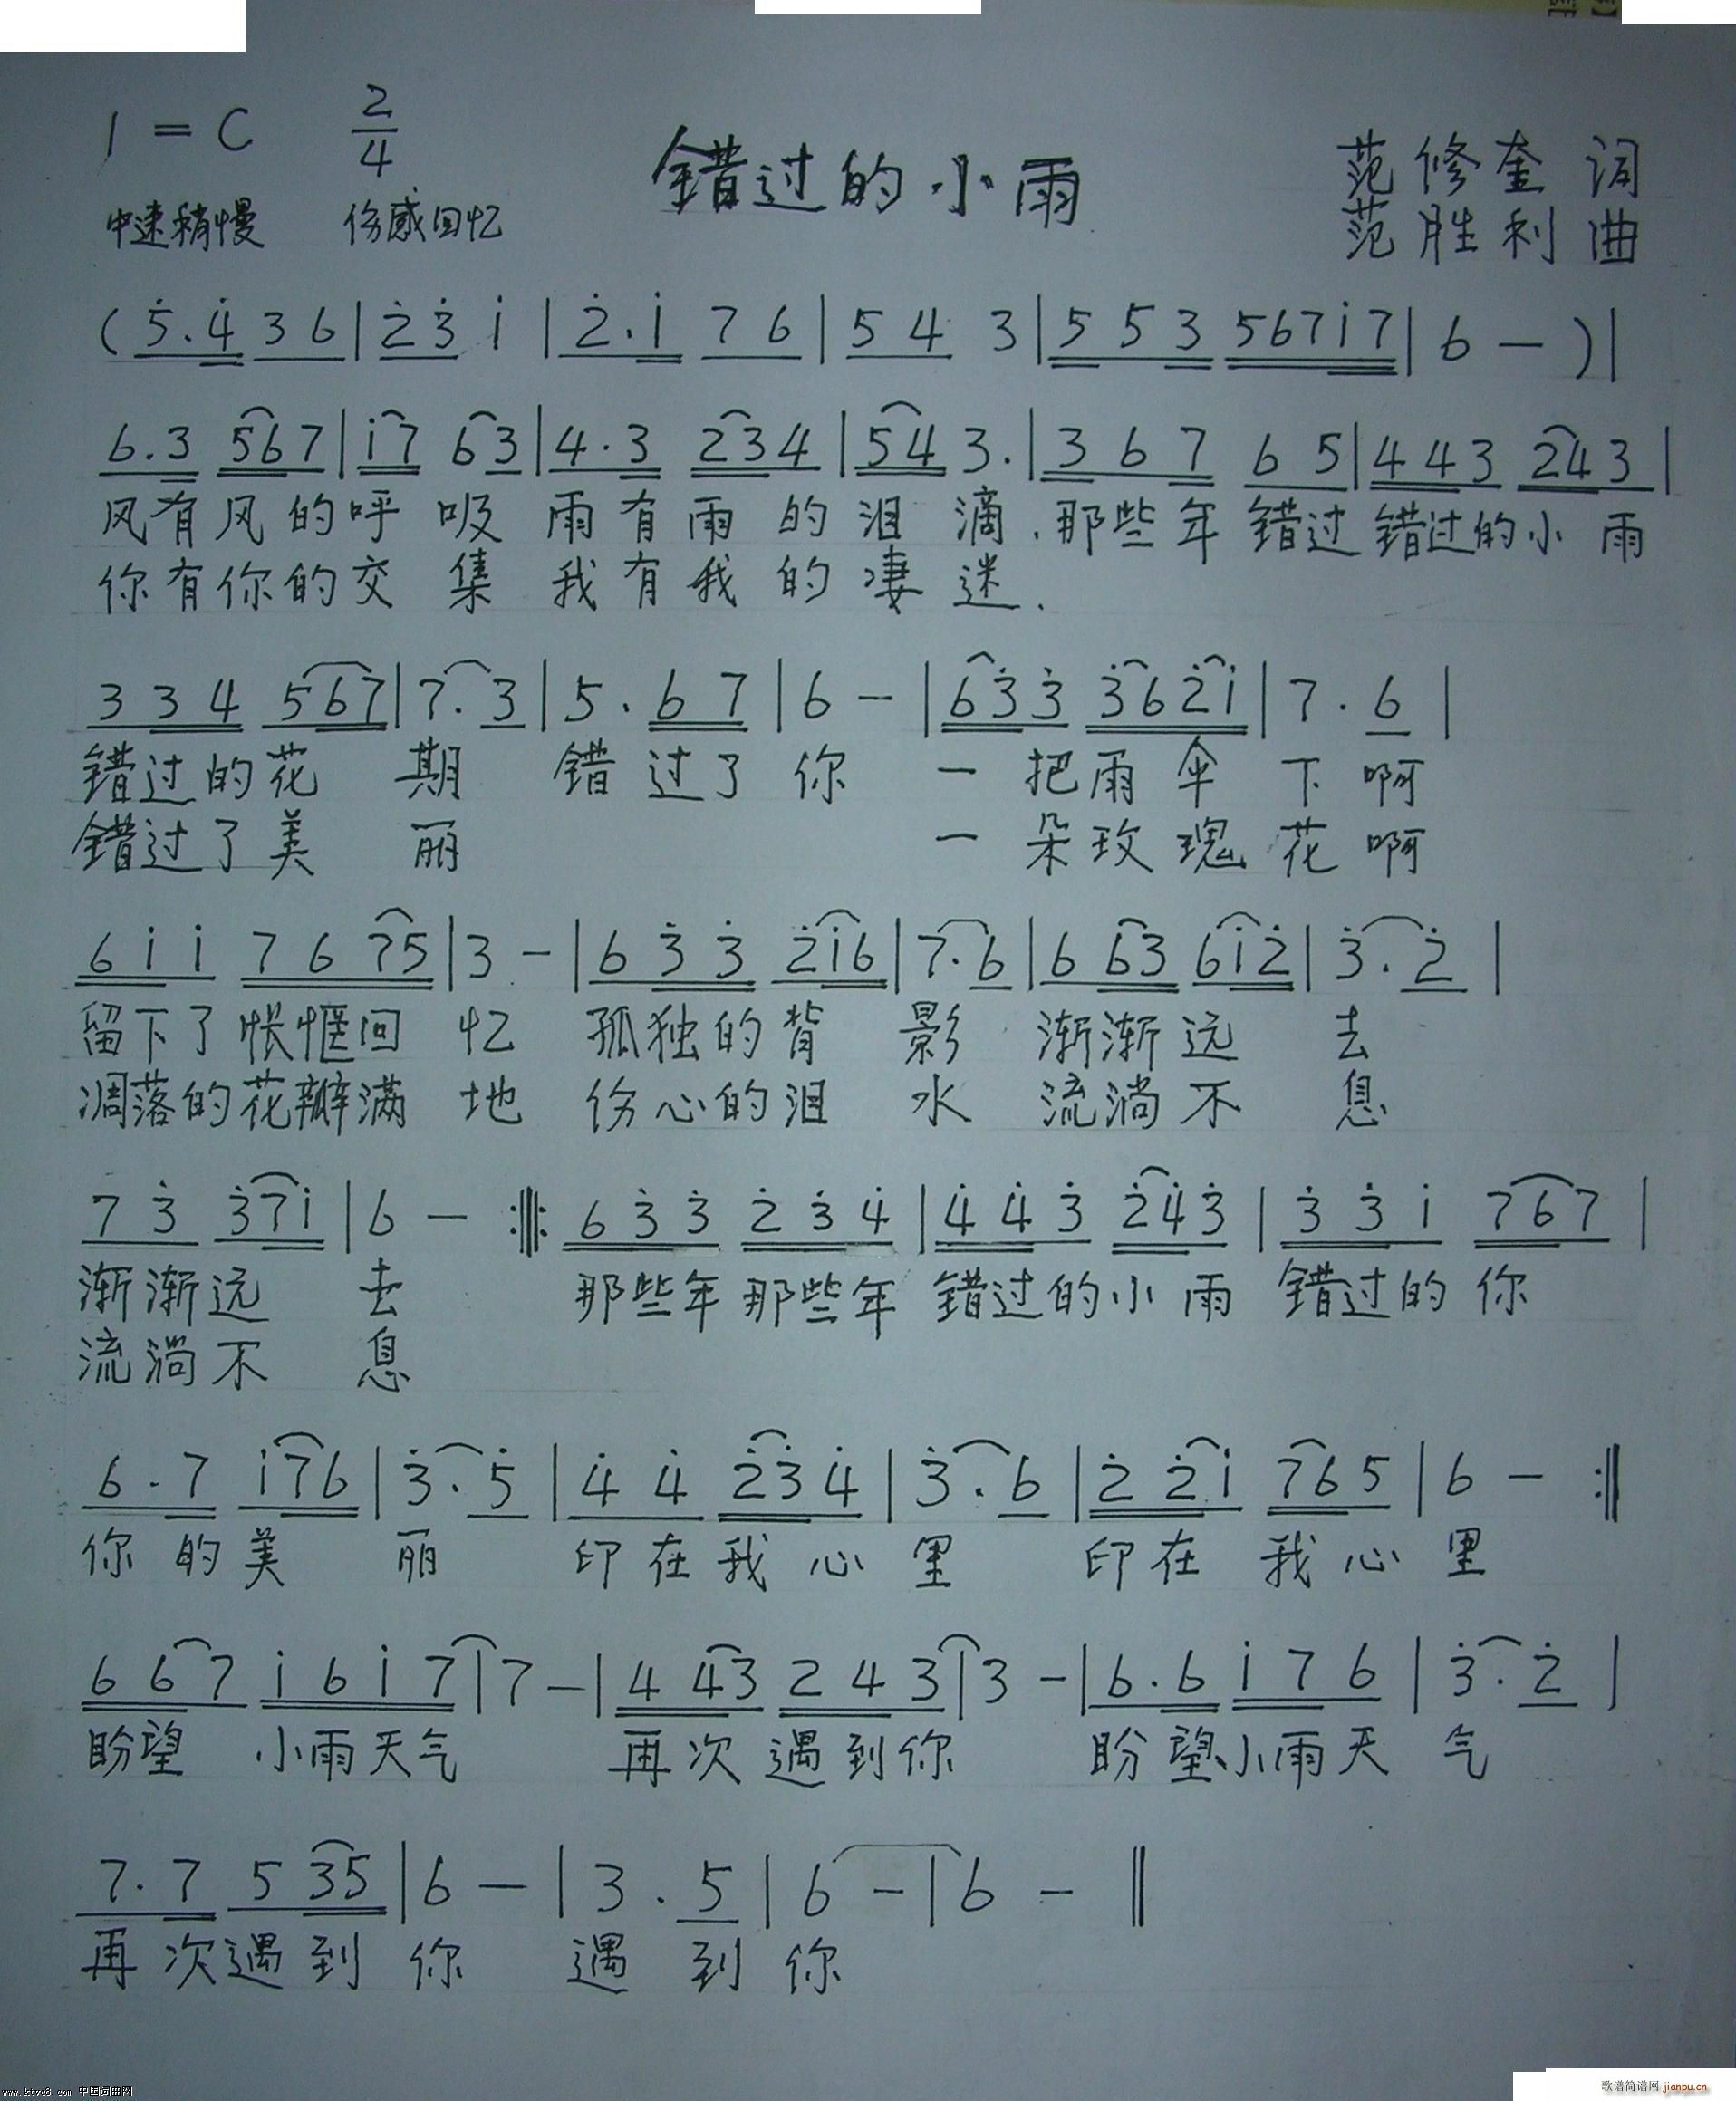 1 = C 2/4
错过的小雨
范修奎 词
中速稍慢 伤感回忆
范胜利 曲
( 5̇. 4̇ 3 6 | 2̇ 3̇ i | 2̇. i 7 6 | 5 4 3 | 5 5 3 5 6 7 i 7 | 6 — ) |
6. 3 5 6 7 | i 7 6 3 | 4 · 3 2 3 4 | 5 4 3. | 3 6 7 6 5 | 4 4 3 2 4 3 |
风有风的呼 吸 雨有雨 的泪 滴、那些年 错过 错过的小 雨
你有你的交 集 我有我 的凄 迷、
3 3 4 5 6 7 | 7. 3 | 5 . 6 7 | 6 — | 6 3̇ 3̇ 3̇ 6 2̇ i | 7 . 6 |
错过的花 期 错 过了 你 一 把雨 伞 下 啊
错过了美 丽 一 朵玫 瑰 花 啊
6 i i 7 6 7 5 | 3 — | 6 3̇ 3̇ 2̇ i 6 | 7. 6 | 6 6 3 6 i 2̇ | 3̇ . 2̇ |
留下了怅惬回 忆 孤独的背 影 渐渐远 去
凋落的花瓣满 地 伤心的泪 水 流淌不 息
7 3̇ 3̇ 7 i | 6 — :||: 6 3̇ 3̇ 2̇ 3̇ 4̇ | 4̇ 4̇ 3̇ 2̇ 4̇ 3̇ | 3̇ 3̇ i 7 6 7 |
渐渐远 去 那些年 那些年 错过的小 雨 错过的 你
流淌不 息
6 . 7 i 7 6 | 3̇ . 5̇ | 4̇ 4̇ 2̇ 3̇ 4̇ | 3̇ . 6 | 2̇ 2̇ i 7 6 5 | 6 — :||
你 的美 丽 印在我 心 里 印在 我心 里
6 6 7 i 6 i 7 | 7 — | 4 4 3 2 4 3 | 3 — | 6 . 6 i 7 6 | 3̇ . 2̇ |
盼望 小雨天气 再次 遇到你 盼 望小雨天 气
7 . 7 5 3 5 | 6 — | 3 . 5 | 6 — | 6 — ||
再 次遇 到 你 遇 到 你
www.ktvc8.com 中国词曲网
歌谱简谱网 jianpu.cn